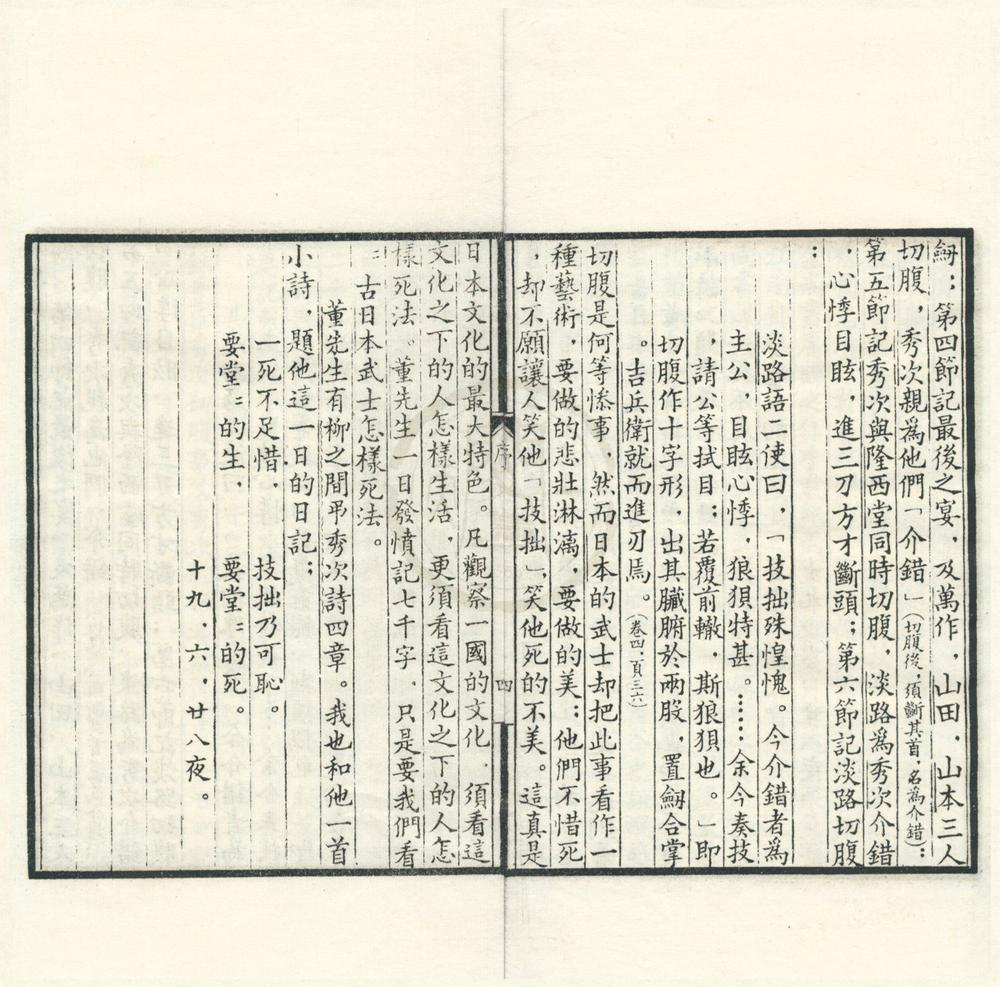 劒；第四節記最後之宴，及萬作，山田，山本三人
切腹，秀次親為他們「介錯」（切腹後，須斷其首，名為介錯）；
第五節記秀次與隆西堂同時切腹，淡路為秀次介錯
，心悸目眩，進三刃方才斷頭；第六節記淡路切腹
：
淡路語二使曰，「技拙殊惶愧。今介錯者為
主公，目眩心悸，狼狽特甚。……余今奏技
，請公等拭目；若覆前轍，斯狼狽也。」即
切腹作十字形，出其臟腑於兩股，置劒合掌
。吉兵衛就而進刃焉。（卷四，頁三六）
切腹是何等慘事，然而日本的武士却把此事看作一
種藝術，要做的悲壯淋漓，要做的美；他們不惜死
，却不願讓人笑他「技拙」，笑他死的不美。這真是
序
四
日本文化的最大特色。凡觀察一國的文化，須看這
文化之下的人怎樣生活，更須看這文化之下的人怎
樣死法。董先生一日發憤記七千字，只是要我們看
：古日本武士怎樣死法。
董先生有柳之間弔秀次詩四章。我也和他一首
小詩，題他這一日的日記；
一死不足惜，技拙乃可恥。
要堂：的生，要堂：的死。
十九，六，廿八夜。